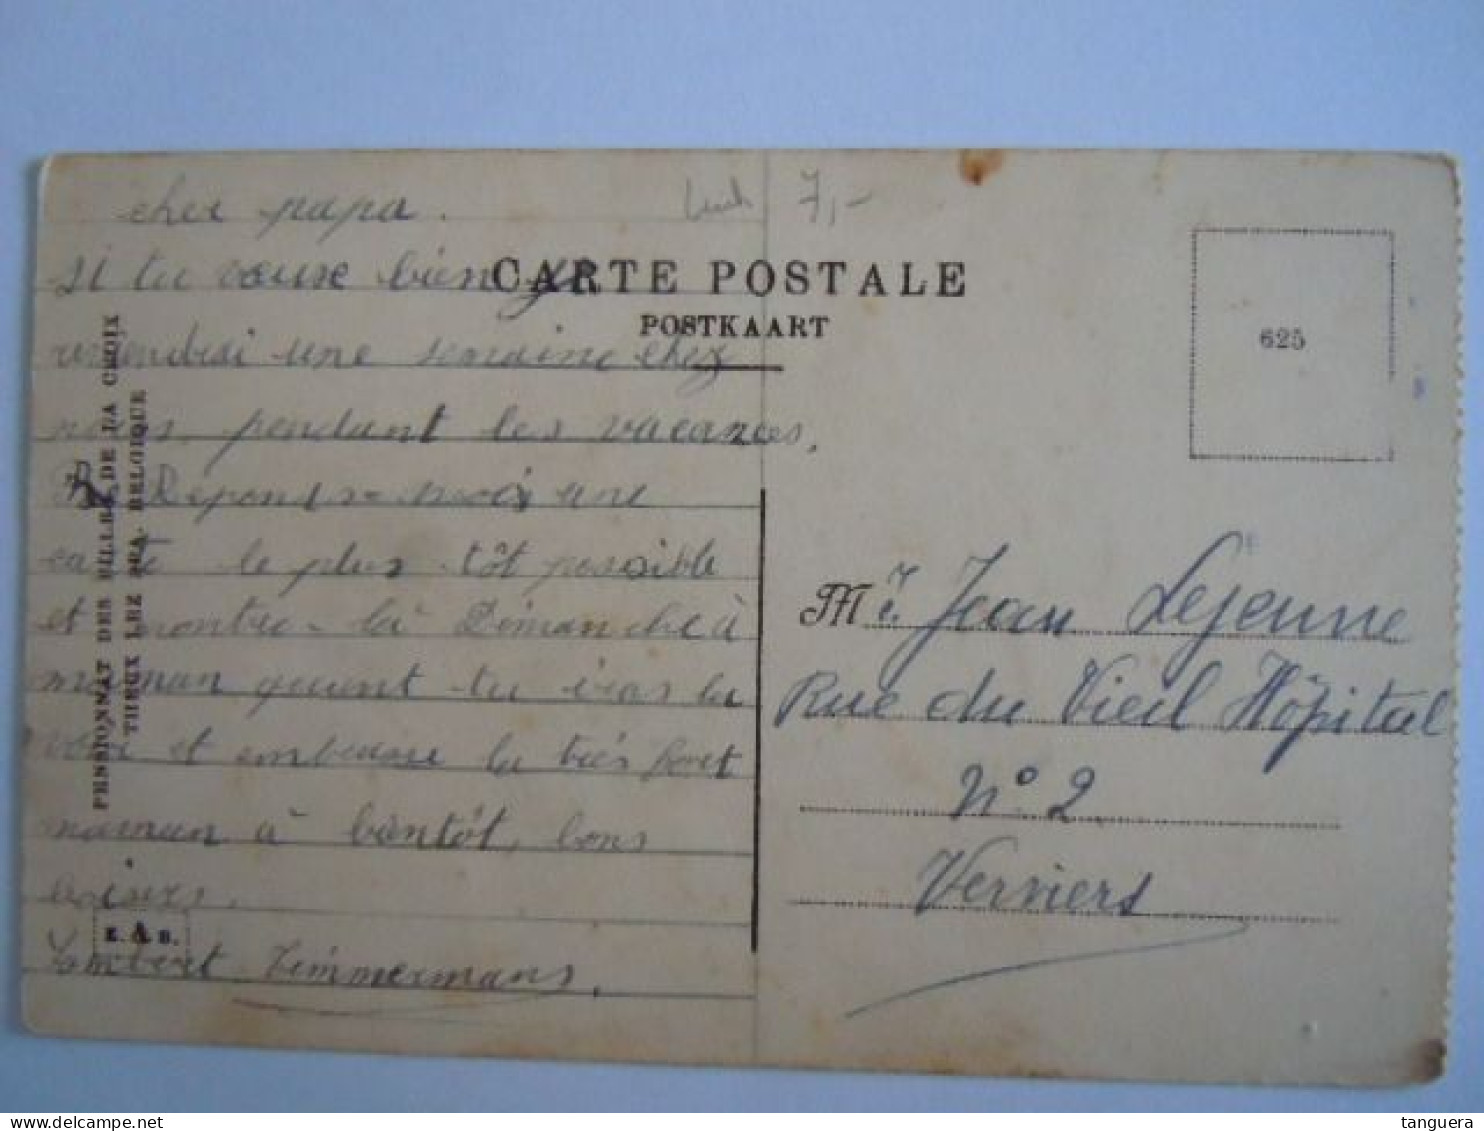 cher papa.
si tu veuse bien je
reviendrai une semaine chez
nous pendant les vacances.
Réponds-moi une
carte le plus tôt possoible
et montre-la Dimanche à
maman quant tu iras la
voir et embrasse la très fort
maman à bientôt, bons
baisers.
Lambert Timmermans.
PENSIONNAT DES FILLES DE LA CROIX
THEUX LEZ SPA. BELGIQUE
E. & B.
7,-
CARTE POSTALE
POSTKAART
625
M Jean Lejeune
Rue du Vieil Hôpital
N° 2
Verviers
tanguera
www.delcampe.net